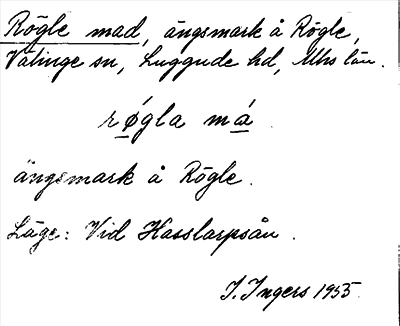 Rögle mad, ängsmark å Rögle,
Välinge sn, Luggude hd, Mhs län.
rǿgla má
ängsmark å Rögle.
Läge: Vid Hasslarpsån.
I. Ingers 1955